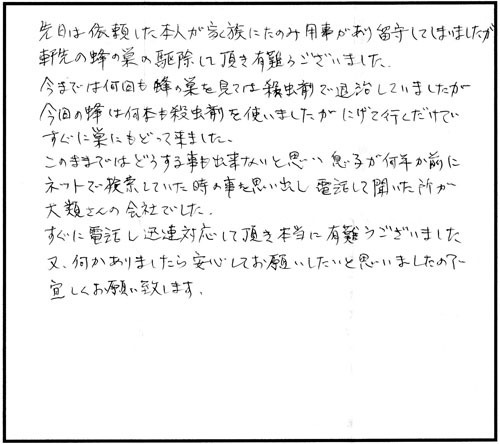 先日は依頼した本人が家族にたのみ用事があり留守してしまいましたが
軒先の蜂の巣の駆除して頂き有難うございました.
今までは何回も蜂の巣を見ては殺虫剤で退治していましたが
今回の蜂は何本も殺虫剤を使いましたがにげて行くだけで
すぐに巣にもどって来ました。
このままではどうする事も出来ないと思い息子が何年か前に
ネットで検索していた時の事を思い出し電話して聞いた所が
大類さんの会社でした.
すぐに電話し迅速対応して頂き本当に有難うございました
又、何かありましたら安心してお願いしたいと思いましたので
宜しくお願い致します.